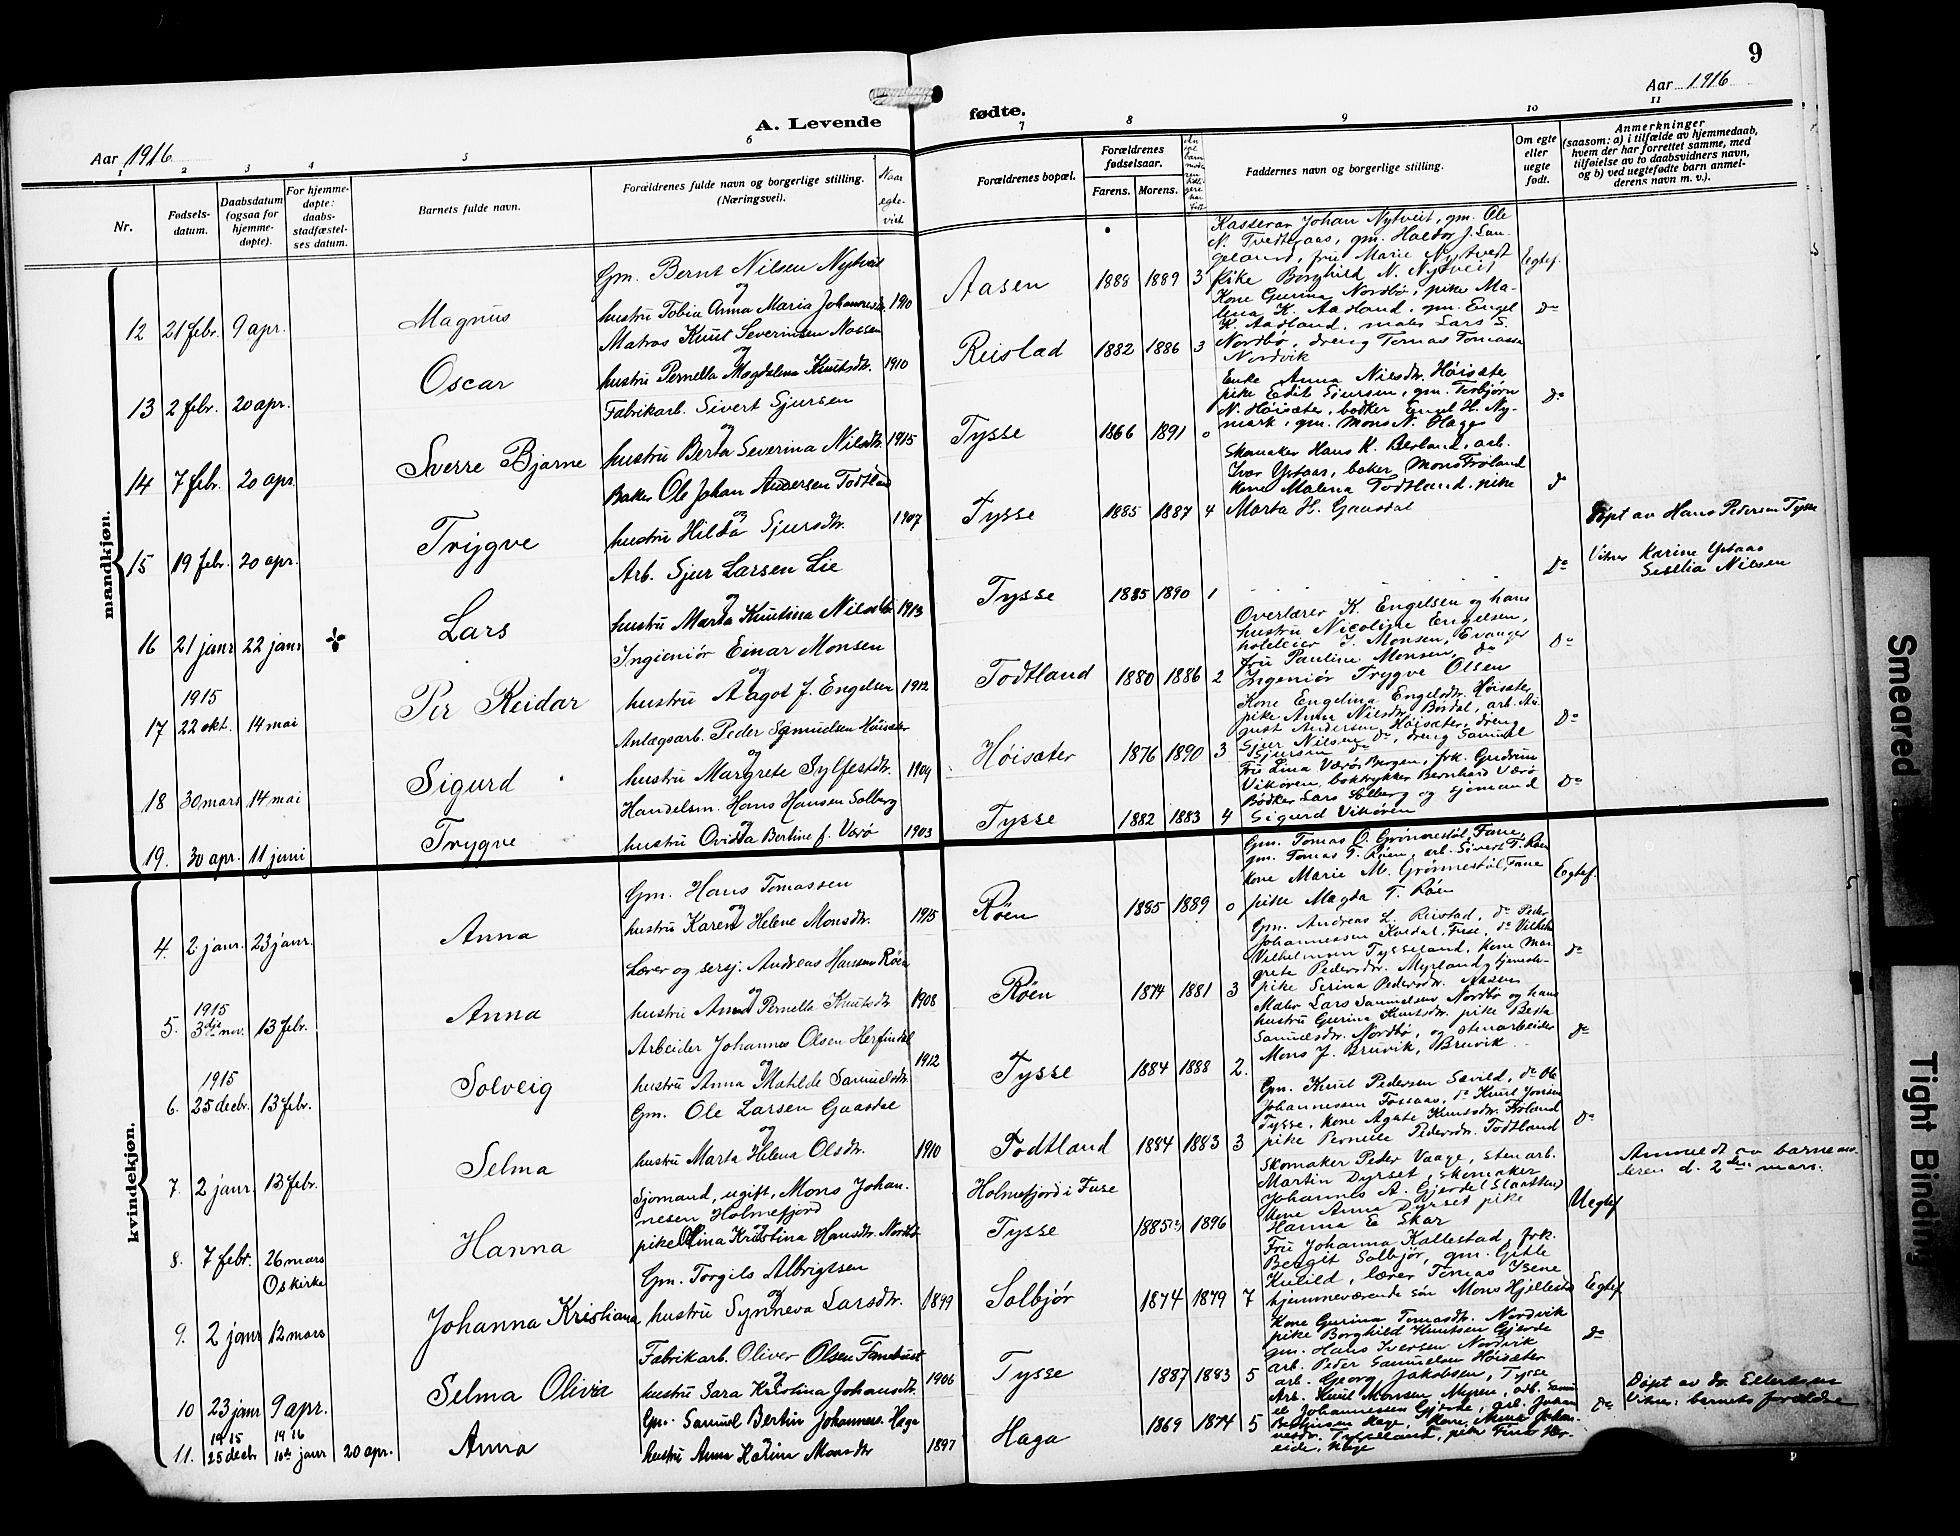 9
Aar 1916
A. Levende
fødte.
Aar 1916
1 2 3 4 5 6 7 8 9 10 11
Nr.
Fødsels-
datum.
Daabsdatum
(ogsaa for
hjemme-
døpte).
For hjemme-
døpte:
daabs-
stadfæstel-
ses datum.
Barnets fulde navn.
Forældrenes fulde navn og borgerlige stilling.
(Næringsvei).
Naar
egte-
viet
Forældrenes bopæl.
Forældrenes
fødselsaar.
Farens. Morens.
Faddernes navn og borgerlige stilling.
Om egte
eller
uegte
født.
Anmerkninger
(saasom: a) i tilfælde av hjemmedaab,
hvem der har forrettet samme, med
tilføielse av to daabsvidners navn,
og b) ved uegtefødte barn anmel-
derens navn m. v.).
mandkjøn.
12 21 febr. 9 apr.
Magnus
Gm. Bernt Nilsen Nytveit
og
hustru Tobia Anna Maria Johannesdtr. 1910
Aasen 1888 1889 3
Kasserar Johan Nytveit, gm. Ole
N. Tvedteraas, gm. Haldor J. Lan-
geland, fru Marie Nytvedt
pike Borghild N. Nytveit
Egtef.
13 2 febr. 20 apr.
Oscar
Matros Knut Severinsen Mossen
og
hustru Pernella Magdalena Knutsdtr. 1910
Reistad 1882 1886 3
Kone Gurina Nordbø, pike Ma-
lena K. Aadland, gm. Engel
K. Aadland, maler Lars S.
Nordbø, dreng Tomas Tomassen
Nordvik
do
14 7 febr. 20 apr.
Sverre Bjarne
Fabrikarb. Sivert Sjursen
og
hustru Berta Severina Nilsdtr. 1915
Tysse 1866 1891 0
Enke Anna Nilsdtr. Høisæter
pike Edit Sjursen, gm. Torbjørn
N. Høisæter, bødker Engel H. Ny-
mark, gm. Mons N. Hage
do
15 19 febr. 20 apr.
Trygve
Baker Ole Johan Andersen Todtland
og
hustru Hilda Sjursdtr. 1907
Tysse 1885 1887 4
Skomaker Hans K. Berland, arb.
Ivar Ystaas, baker Mons Frøland
kone Malena Todtland, pike
Marta H. Gaasdal
do
16 21 janr 22 janr
Lars
Arb. Sjur Larsen Lie
og
hustru Marta Knutina Nilsdtr 1913
Tysse 1885 1890 1
do
Døpt av Hans Pedersen Tysse
Vitner Karine Ystaas
Sesilia Nilsen
17 1915
22 okt. 14 mai
Per Reidar
Ingieniør Einar Monsen
og
hustru Aagot f. Engelsen 1912
Todtland 1880 1886 2
Overlærer K. Engelsen og hans
hustru Nicoline Engelsen,
hoteleier J. Monsen, Evanger
fru Pauline Monsen, do
Ingeniør Trygve Olsen
do
18 30 mars 14 mai
Sigurd
Anlægsarb. Peder Samuelsen Høisæter
og
hustru Margrete Sylfestdtr. 1909
Høisæter 1876 1890 3
Kone Engelina Engelsdtr. Høisæter
pike Anna Nilsdtr. Børdal, arb. Au-
gust Andersen Høisæter, dreng
Sjur Nilsen do, dreng Samuel
Sjursen do
do
19. 30 apr. 11 juni
Trygve
Handelsm. Hans Hansen Solberg
og
hustru Ovidia Bertine f. Værø 1903
Tysse 1882 1883 4
Fru Lina Værø Bergen, frk. Gudrun
Vikøren, boktrykker Bernhard Værø
Bødker Lars Solberg og sjømand
Sigurd Vikøren
do
kvindekjøn.
4. 2 janr. 23 janr.
Anna
Gm. Hans Tomassen
og
hustru Karen Helene Monsdtr. 1915
Røen 1885 1889 0
Gm. Tomas O. Grønnestøl, Fane,
gm. Tomas T. Røen, arb. Sivert T. Røen
kone Marie M. Grønnestøl, Fane
pike Magda T. Røen
Egtef.
5. 1915
3dje nov. 13 febr.
Anna
Lærer og sersj. Andreas Hansen Røen
og
hustru Anna Pernella Knutsdtr. 1908
Røen 1874 1881 3
Gm. Andreas L. Reistad, do Peder
Johannessen Koldal, Fuse, do Vilhelm
Vilhelmsen Tysseland, kone Mar-
grete Pedersdtr. Myrland, tjeneste-
pike Serina Pedersdtr. Aasen
do
6. 1915
25 decbr. 13 febr.
Solveig
Arbeider Johannes Olsen Herfindal
og
hustru Anna Matilde Samuelsdtr. 1912
Tysse 1884 1888 2.
Maler Lars Samuelsen Nordbø og hans
hustru Gurina Knutsdtr. pike Berta
Samuelsdtr. Nordbø, og stenarbeider
Mons J. Bruvik, Bruvik
do
7. 2 janr. 13 febr.
Selma
Gm. Ole Larsen Gaasdal
og
hustru Marta Helena Olsdtr. 1910
Todtland 1884 1883 3
Gm. Knut Pedersen Sævild, do Ole
Johannessen Fossaas, do Knut Jonsen
Tysse, kone Agate Knutsdtr. Frøland
pike Pernille Pedersdtr. Todtland
do
8. 7 febr. 26 mars
Os kirke
Hanna
Sjømand, ugift, Mons Johan-
nesen Holmefjord
og
pike Olina Kristina Hansdtr. Nordbø
Holmefjord i Fuse
Tysse 1885(?) 1896
Skomaker Peder Vaage, stenarb.
Martin Dyrset, skomaker
Johannes A. Gjerde (Slaatten)
kone Anna Dyrset pike
Hanna E Skar
Uegtef
Anmeldt av barnemo-
deren d. 2den mars.
9. 2 janr 12 mars
Johanna Kristiana
Gm. Torgils Albrigtsen
og
hustru Synneva Larsdtr. 1899
Solbjør 1874 1879 7
Fru Johanna Kallestad, frk.
Bergit Solbjør, gm. Gitle
Kvitild, lærer Tomas Ysene
hjemmeværende søn Mons Hjellestad
Egtef.
10 23 janr 9 apr.
Selma Olivia
Fabrikarb. Oliver Olsen
og
hustru Sara Karolina Johansdtr. 1906
Tysse 1887 1883 5
Kone Gurina Tomasdtr. Nordvik
pike Borghild Knutsen Gjerde
gm. Hans Iversen Nordvik
arb. Peder Samuelsen Høisæter
arb. Georg Jakobsen, Tysse
do
11. 1915
25 decbr 1916
10de janr 20 apr.
Anna
Gm. Samuel Bertin Johanness. Haga
og
hustru Anna Karina Monsdtr 1897
Haga 1869 1874 5
Arb. Knut Monsen Myren, arb. Samu-
el Johannessen Gjerde, arb. Johan
Bertinsen Hage, kone Anna Johan-
nesdtr. Tysseland, pike Fina
eide, Hage
do
Døpt av dr. Ellertsen
Vitner: barnets forældre
Smeared
Tight Binding